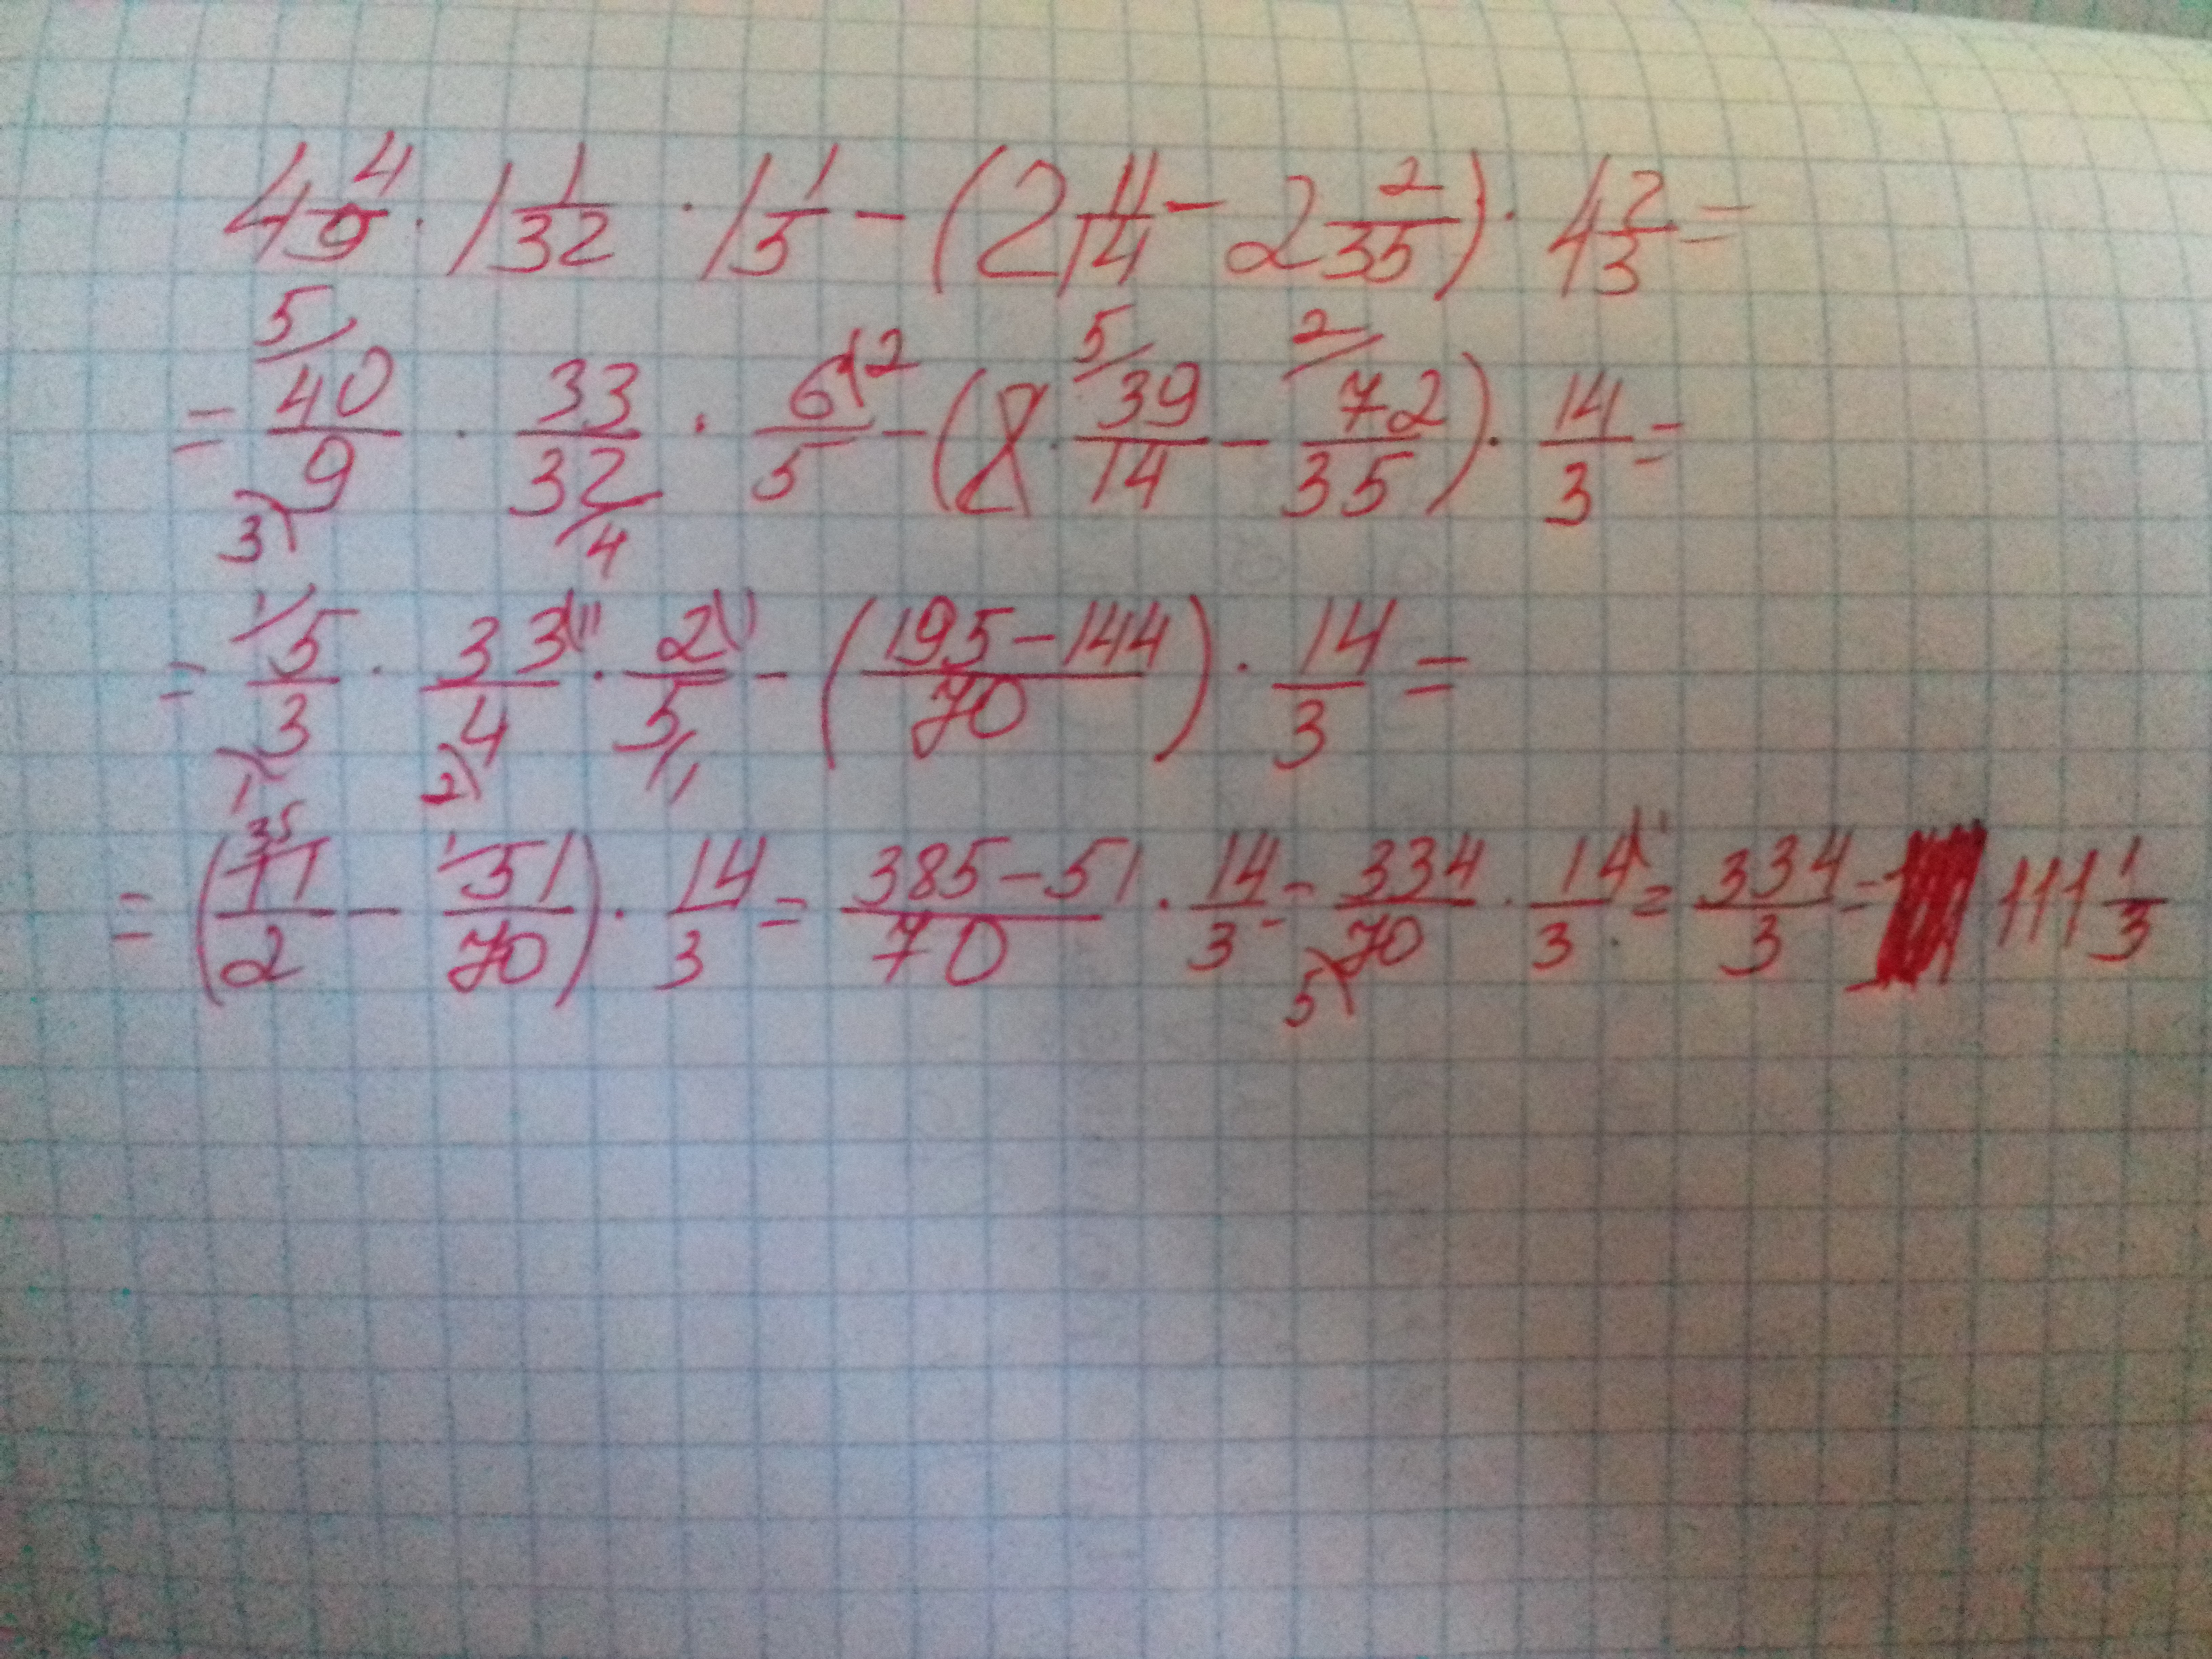 4 4/9 · 1 1/32 · 1 1/5 − (2 11/14 − 2 2/35) · 4 2/3 =
= 5/ 40/9 3\ · 33/32 /4 · 6/5 \2 − (5/ 39/14 − 2/ 72/35) · 14/3 =
= 1/ 5/3 1\ · 33/4 \11 2\ · 2/5 \1 /1 − ((195 − 144)/70) · 14/3 =
= (35/ 11/2 − 1/ 51/70) · 14/3 = (385 − 51)/70 · 14/3 = 334/70 5\ · 14/3 \1 = 334/3 = 111 1/3